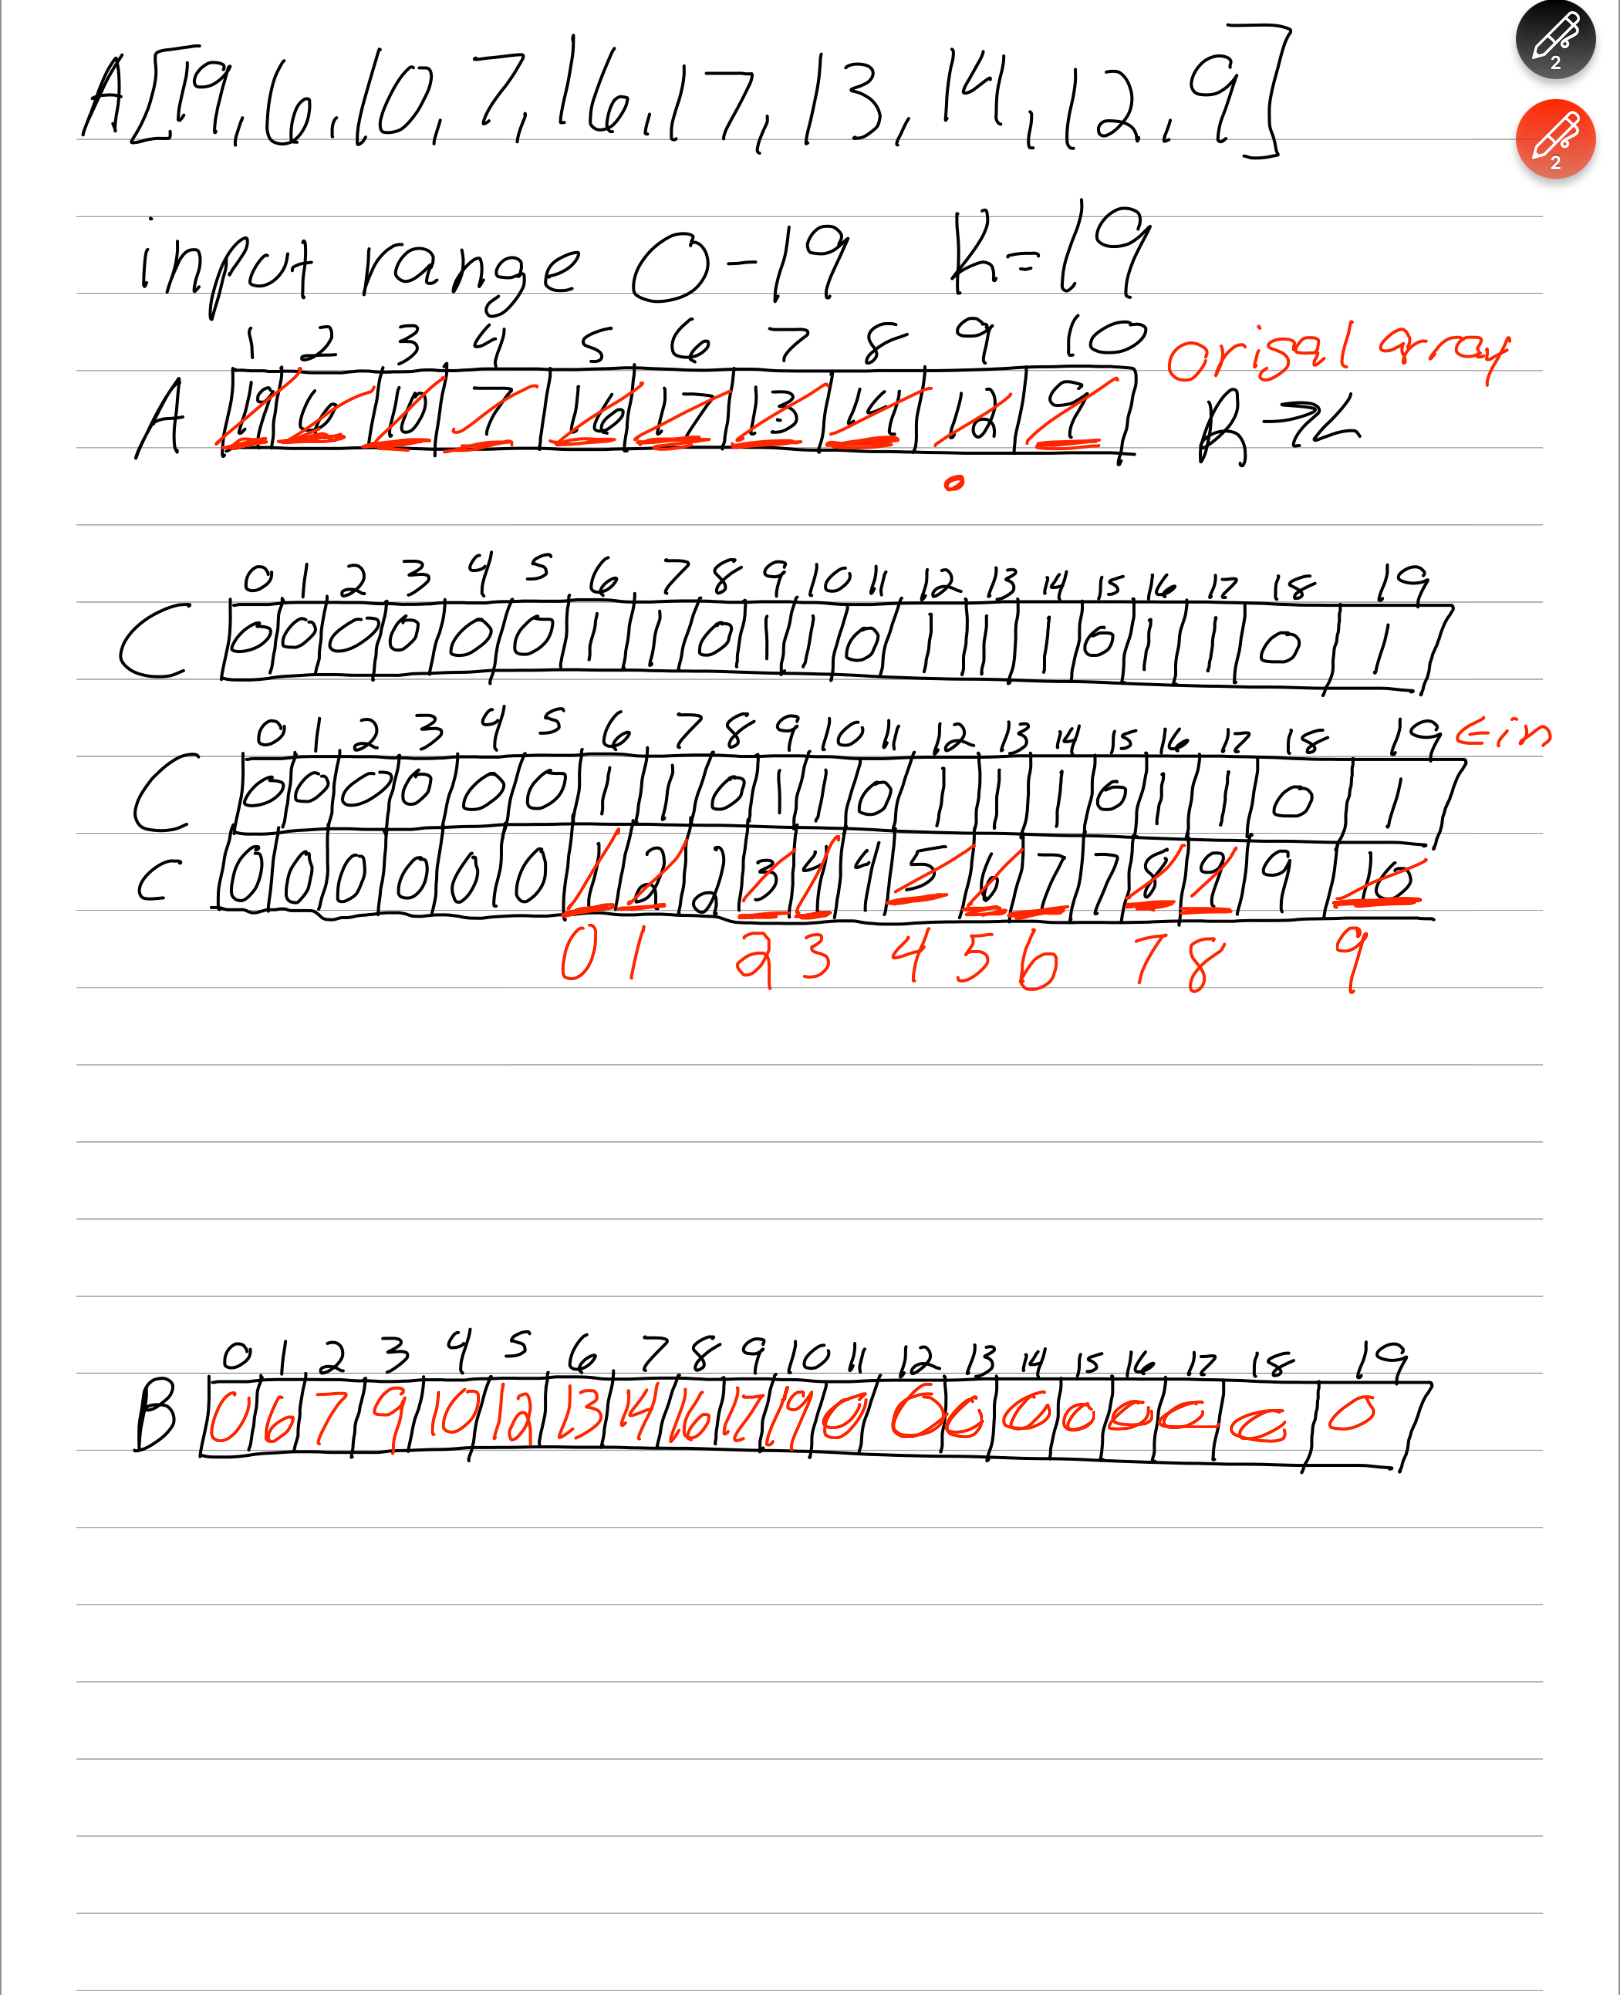 2
2
A[19,6,10,7,16,17,13,14,12,9]
input range 0-19 K=19
1 2 3 4 5 6 7 8 9 10 orisal array
A 19 6 10 7 16 17 13 14 12 9 R→L
0 1 2 3 4 5 6 7 8 9 10 11 12 13 14 15 16 17 18 19
C 0 0 0 0 0 0 1 1 0 1 1 0 1 1 1 0 1 1 0 1
0 1 2 3 4 5 6 7 8 9 10 11 12 13 14 15 16 17 18 19 ←in
C 0 0 0 0 0 0 1 1 0 1 1 0 1 1 1 0 1 1 0 1
C 0 0 0 0 0 0 1 2 2 3 4 4 5 6 7 7 8 9 9 10
0 1 2 3 4 5 6 7 8 9
0 1 2 3 4 5 6 7 8 9 10 11 12 13 14 15 16 17 18 19
B 0 6 7 9 10 12 13 14 16 17 19 0 0 0 0 0 0 0 0 0